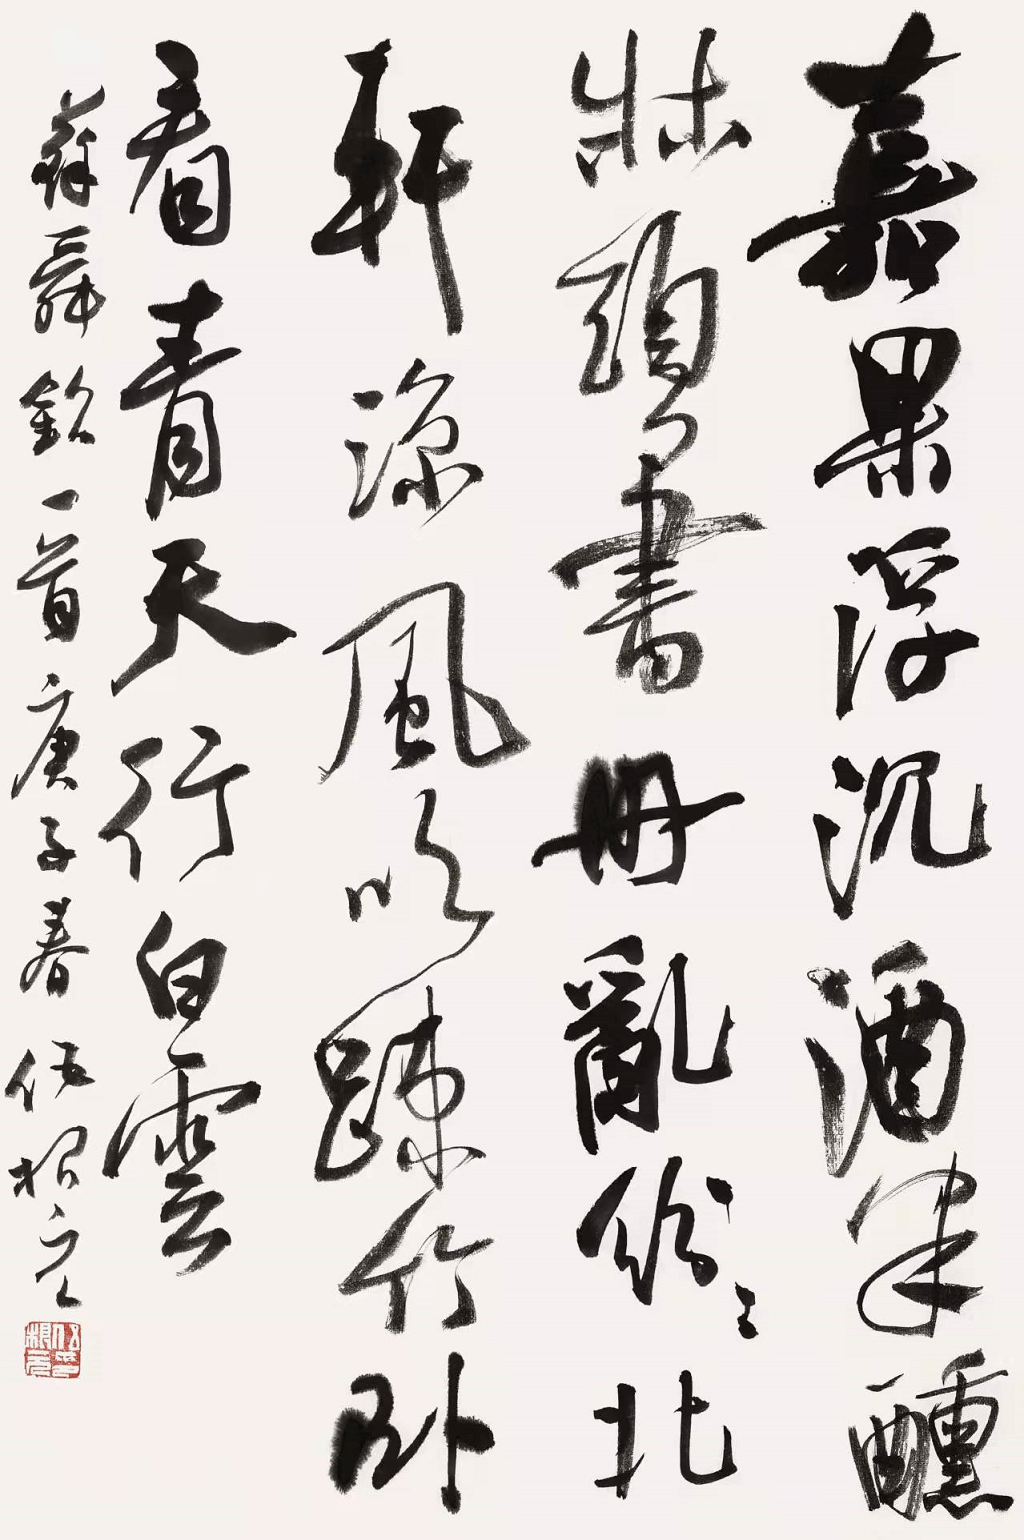 嘉果浮沉酒半醺
牀頭書冊亂紛〻北
軒涼風吹疎竹卧
看青天行白雲
蘇舜欽一首庚子春伍根之